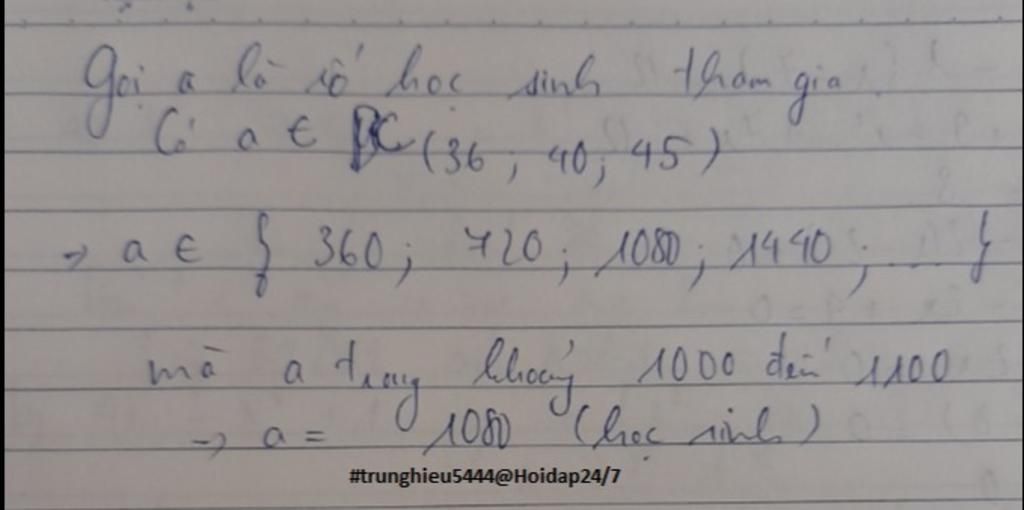 Gọi a là số học sinh tham gia
Có a ∈ BC (36 ; 40 ; 45)
→ a ∈ { 360 ; 720 ; 1080 ; 1440 ; ... }
mà a trong khoảng 1000 đến 1100
→ a = 1080 (học sinh)
#trunghieu5444@Hoidap24/7